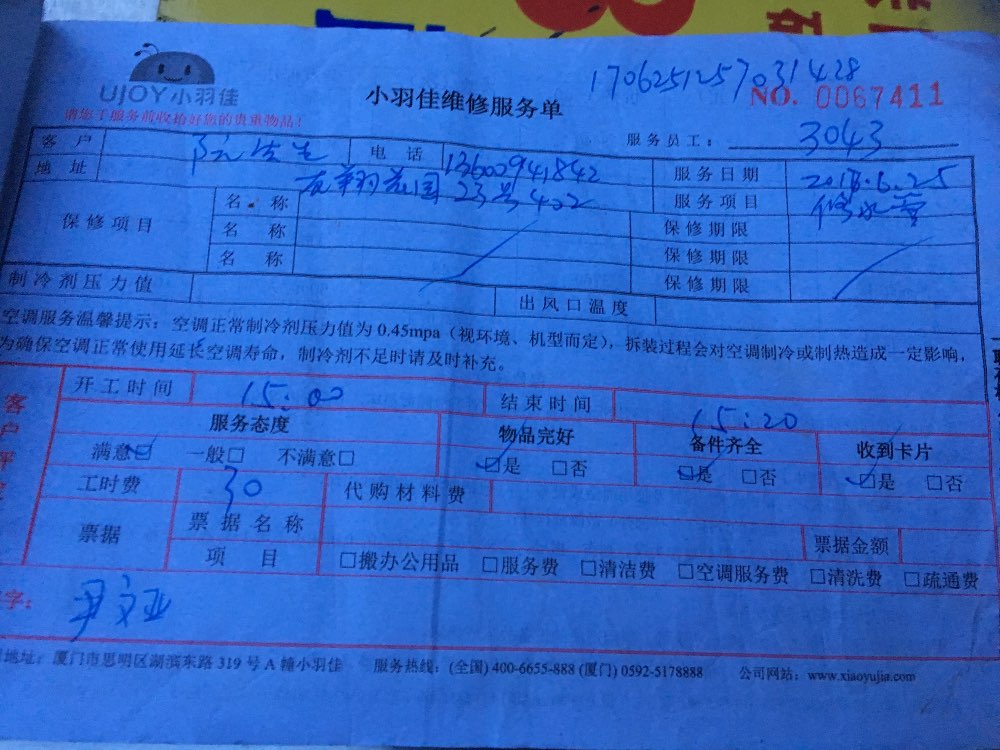 UJOY小羽佳
小羽佳维修服务单
1706251257031428
NO. 0067411
请您于服务前收拾好您的贵重物品!
服务员工: 3043
客户 阮先生 电话 13600941842 服务日期 2017.6.25
地址 友翔花园23号402 服务项目 修水管
保修项目 名称 保修期限
名称 保修期限
名称 保修期限
制冷剂压力值 出风口温度
空调服务温馨提示: 空调正常制冷剂压力值为 0.45mpa(视环境、机型而定),拆装过程会对空调制冷或制热造成一定影响,
为确保空调正常使用延长空调寿命,制冷剂不足时请及时补充。
客户评
开工时间 15:00 结束时间 15:20
服务态度 物品完好 备件齐全 收到卡片
满意☑ 一般□ 不满意□ ☑是 □否 ☑是 □否 ☑是 □否
工时费 30 代购材料费
票据 票据名称 票据金额
项目 □搬办公用品 □服务费 □清洁费 □空调服务费 □清洗费 □疏通费
字: 尹文亚
地址: 厦门市思明区湖滨东路 319 号 A 幢小羽佳 服务热线: (全国) 400-6655-888 (厦门) 0592-5178888 公司网站: www.xiaoyujia.com